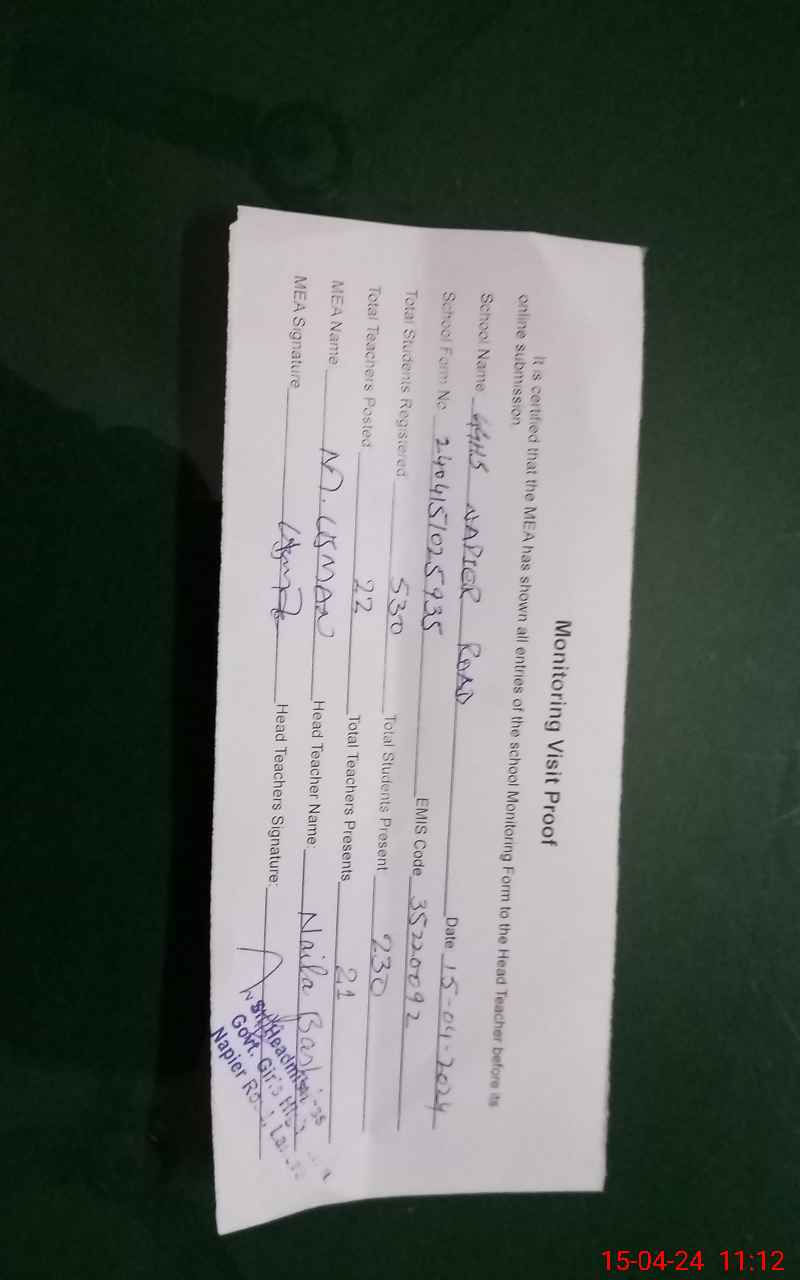 Monitoring Visit Proof
It is certified that the MEA has shown all entries of the school Monitoring Form to the Head Teacher before its
online submission.
School Name GGHS NAPIER ROAD Date 15-04-2024
School Form No. 2404151025935 EMIS Code 35220092
Total Students Registered 530 Total Students Present 230
Total Teachers Posted 22 Total Teachers Presents 21
MEA Name M. USMAN Head Teacher Name: Naila
MEA Signature Head Teachers Signature:
Govt. Girls
Napier
15-04-24 11:12